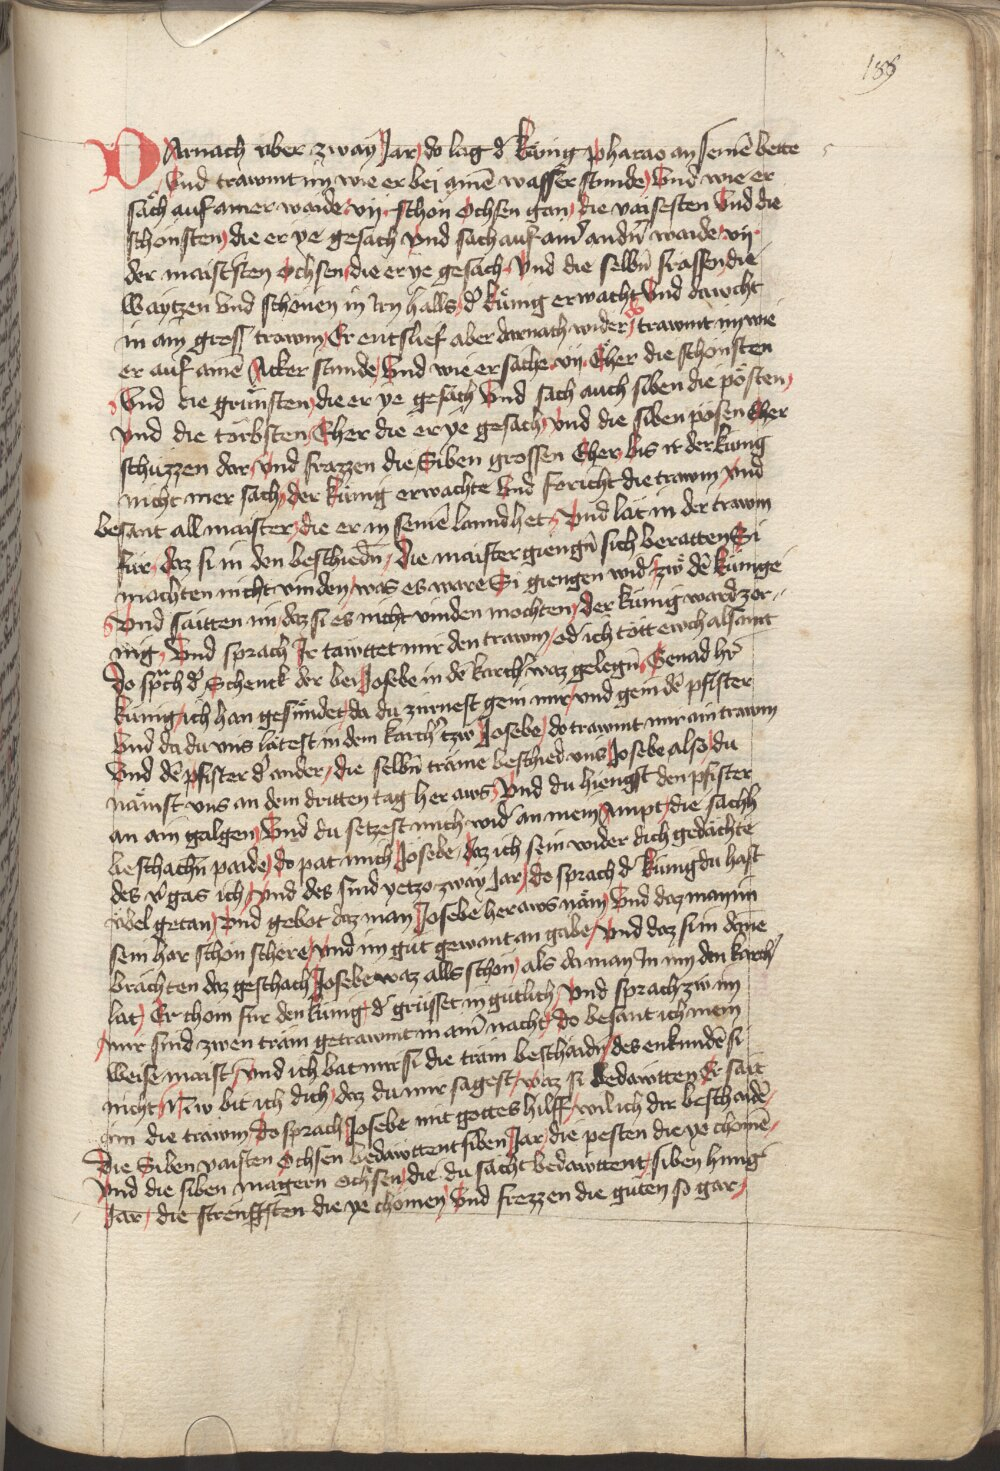 188
DArnach vber zway Jar do lag d' künig pharao an seinē bette
Vnd trawmt im wie er bei ainē wasser stunde Vnd wie er
säch auf ainer waide vij schön Ochsen gan die vaisesten Vnd die
schönsten die er ye gesach Vnd sach auf ain' andn̄ waide vij
der maisten Ochsen die er ye gesäch Vnd die selbn̄ frassen die
Vaytzen Vnd schönen in irn halls d' künig erwacht Vnd dawcht
in ain gross trawm Er entslief aber darnach wider so trawmt im wie
er auf ainē Acker stunde Vnd wie er sache vij Eher die schönsten
Vnd die grünsten die er ye gesäch Vnd sach auch siben die pösten
Vnd die törbsten Eher die er ye gesach Vnd die siben pösen Eher
schuzzen dar Vnd frazzen die Siben grossen Eher bis ir der künig
nicht mer sach der künig erwachte Vnd foricht die trawm Vnd
besant all maister die er in seinē lannd het Vnd lät in der trawm
für daz si in den beschiedn̄ die maister giengn̄ sich beratten Si
mochten nicht vinden was es ware Si giengen wid' zw dē künige
Vnd saitten im daz si es nicht vinden mochten der künig ward zor
nig Vnd sprach Ir tawttet mir den trawm od' ich tött ewch alsamt
do sprach d' Schenck der bei Josebe in dē karch' waz gelegn̄ Genad h'r
künig ich han gesündet da du zurnest gein mir vnd gein dē pfister
Vnd da du vns lätest in dem karch' tzw Josebe do trawmt mir ain trawm
Vnd dē pfister d' ander die selbn̄ träme beschied vns Josebe also du
nämst vns an dem dritten tag her aws Vnd du hiengst den pfister
an ain galgen Vnd du setzest mich wid' an mein Ampt die sach
beschachn̄ paide do pat mich Josebe daz ich sein wider dich gedächte
des v'gas ich Vnd des sind yetzo zway Jar do sprach d' künig du hast
übel getan Vnd gebot daz man Josebe her aws näm Vnd daz man im
sein har schön schere Vnd im gut gewant an gabe Vnd daz si im dāne
brächten daz geschach Josebe waz alls schön als da man In in den karch'
lät Er chom für den künig d' grüsset in gütlich Vnd sprach zw im
mir sind zwen träm getrawmt in ain' nacht do besant ich mein
Weise maist' Vnd ich bat mir si die träm beschaidn̄ des enkundē si
nicht Nw bit ich dich daz du mir sagest waz si bedawtten Er sait
im die trawm do sprach Josebe mit gottes hilff wil ich dir beschaidē
die Siben vaisten Ochsen bedawttent siben Jar die pesten die ye chomē
Vnd die siben magern ochsen die du sächt bedawttent siben hung'
Jar die strenngsten die ye chomen Vnd frezzen die guten so gar